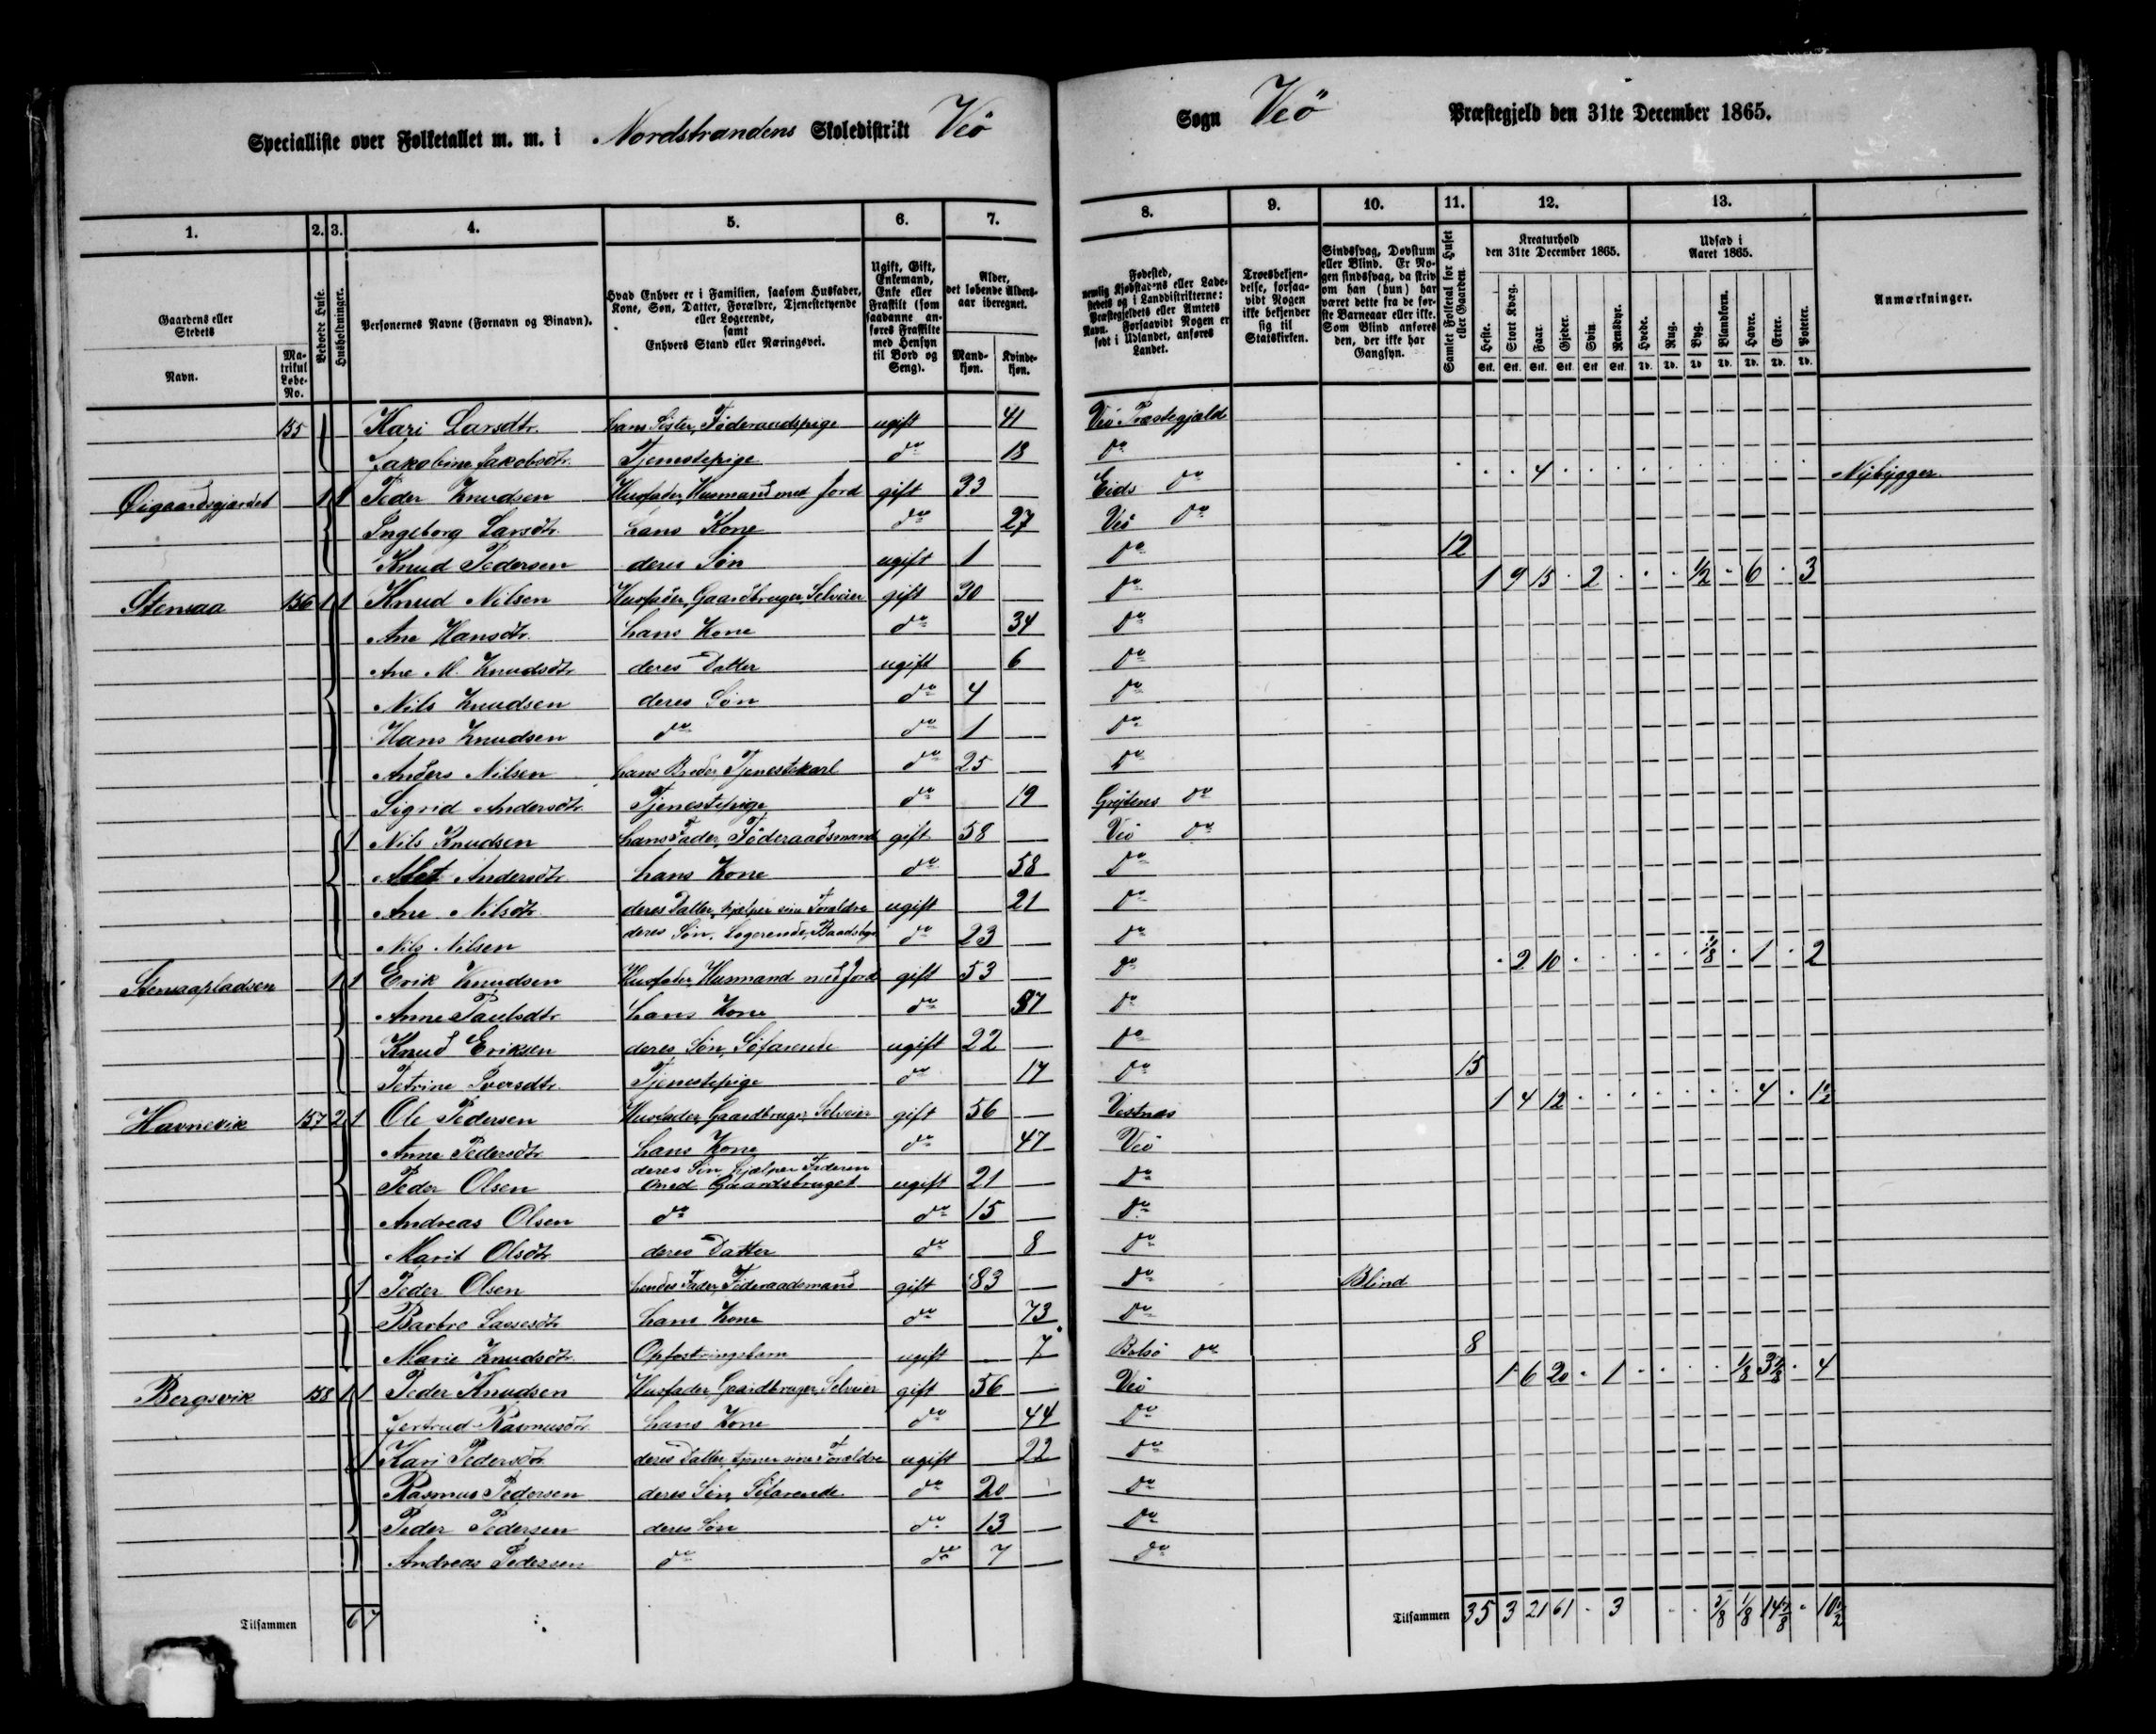 Specialliste over Folketallet m. m. i Nordstrandens Skoledistrikt Veö Sogn Veö Præstegjeld den 31te December 1865.
1. 2. 3. 4. 5. 6. 7. 8. 9. 10. 11. 12. 13.
Gaardens eller Stedets
Navn.
Matrikul Løbe-No.
Beboede Huse.
Husholdninger.
Personernes Navne (Fornavn og Binavn).
Hvad Enhver er i Familien, saasom Husfader, Kone, Søn, Datter, Forældre, Tjenestetyende eller Logerende, samt Enhvers Stand eller Næringsvei.
Ugift, Gift, Enkemand, Enke eller Fraskilt (som saadanne anføres Fraskilte med Hensyn til Bord og Seng).
Alder, det løbende Aldersaar iberegnet.
Mandkjøn. Kvindekjøn.
Fødested, nemlig Kjøbstadens eller Ladestedets og i Landdistrikterne: Præstegjeldets eller Amtets Navn. Forsaavidt Nogen er født i Udlandet, anføres Landet.
Troesbekjendelse, forsaavidt Nogen ikke bekjender sig til Statskirken.
Sindssvag, Døvstum eller Blind. Er Nogen sindssvag, da skriv om han (hun) har været dette fra de første Barneaar eller ikke. Som Blind anføres den, der ikke har Gangsyn.
Samlet Folketal for Huset eller Gaarden.
Kreaturhold den 31te December 1865.
Heste. Stort Kvæg. Faar. Gjeder. Svin. Rensdyr.
Stk. Stk. Stk. Stk. Stk. Stk.
Udsæd i Aaret 1865.
Hvede. Rug. Byg. Blandkorn. Havre. Erter. Poteter.
Td. Td. Td. Td. Td. Td. Td.
Anmærkninger.
155 Kari Larsdtr. hans Søster, Føderaadspige ugift 41 Veö Præstegjæld
Jakobine Jakobsdtr. Tjenestepige do 18 do
Øigaardsgjærdet 1 1 Peder Knudsen Husfader, Husmand med Jord gift 33 Eids do 4 Nybygger
Ingeborg Larsdtr hans Kone do 27 Veö do
Knud Pedersen deres Søn ugift 1 do 12
Stensaa 156 1 1 Knud Nilsen Husfader, Gaardbruger, Selveier gift 30 do 1 9 15 2 1/2 6 3
Ane Hansdtr. hans Kone do 34 do
Ane M. Knudsdtr deres Datter ugift 6 do
Nils Knudsen deres Søn do 4 do
Hans Knudsen do do 1 do
Anders Nilsen hans Broder, Tjenestekarl do 25 do
Sigrid Andersdtr Tjenestepige do 19 Grytens do
1 Nils Knudsen hans Fader, Føderaadsmand gift 58 Veö do
Andersdtr hans Kone do 58 do
Ane Nilsdtr deres Datter, hjælper sine Forældre ugift 21 do
Nils Nilsen deres Søn, Logerende, do 23 do
Stensaapladsen 1 1 Erik Knudsen Husfader, Husmand med Jord gift 53 do 2 10 1/8 1 2
Anne Paulsdtr hans Kone do 57 do
Knud Eriksen deres Søn, Søfarende ugift 22 do
Petrine Iversdtr. Tjenestepige do 17 do 15
Havnevik 157 2 1 Ole Pedersen Husfader, Gaardbruger, Selveier gift 56 Vestnæs 1 4 12 4 1 1/2
Anne Pedersdtr hans Kone do 47 Veö
Peder Olsen deres Søn, hjælper Faderen med Gaardsbruget ugift 21 do
Andreas Olsen do do 15 do
Marit Olsdtr deres Datter do 8 do
1 Peder Olsen hendes Fader, Føderaadsmand gift 83 do Blind
Barbro Lassesdtr hans Kone do 73 do
Marie Knudsdtr. Opfostringsbarn ugift 7 Bolsö do 8
Bergsvik 158 1 1 Peder Knudsen Husfader, Gaardbruger, Selveier gift 56 Veö 1 6 20 1 1/8 3 4
Gertrud Rasmusdtr hans Kone do 44 do
1 Kari Pedersdtr deres Datter, tjener sine Forældre ugift 22 do
Rasmus Pedersen deres Søn, Søfarende do 20 do
Peder Pedersen deres Søn do 13 do
Andreas Pedersen do do 7 do
Tilsammen 6 7 Tilsammen 35 3 21 61 3 5/8 1/8 14 10 1/2